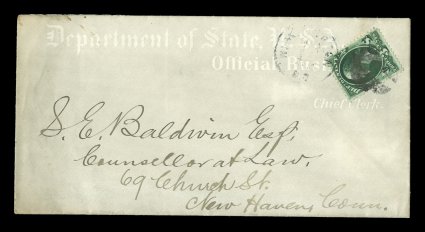 Department of State, U.S.
Official Busi
Chief Clerk.
S. E. Baldwin Esq.
Counsellor at Law.
69 Church St.
New Haven, Conn.